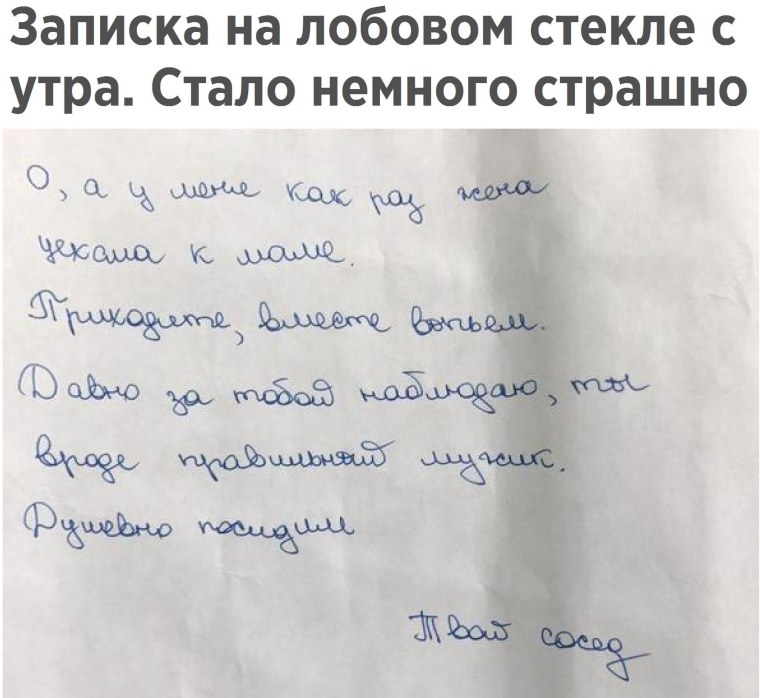 Записка на лобовом стекле с
утра. Стало немного страшно
О, а у мене как раз жена
уехала к маме.
Приходите, вместе выпьем.
Давно за тобой наблюдаю, ты
вроде правильный мужик.
Душевно посидим
Твой сосед